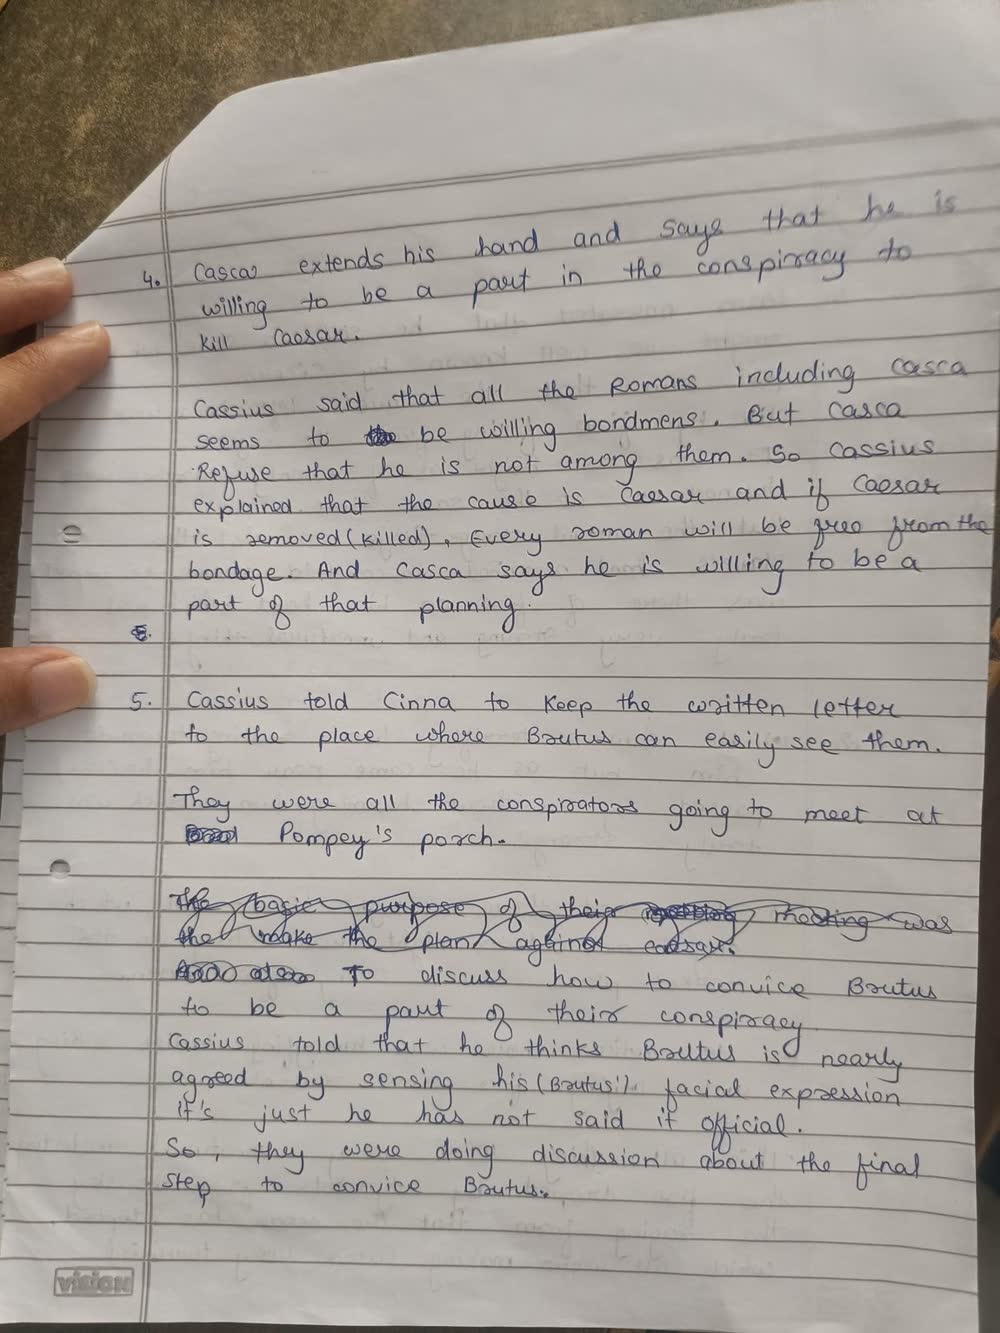 4. Casca extends his hand and says that he is
willing to be a part in the conspiracy to
kill Caesar.
Cassius said that all the Romans including Casca
seems to be willing bondmens. But Casca
Refuse that he is not among them. So Cassius
explained that the cause is Caesar and if Caesar
is removed (killed), Every roman will be free from the
bondage. And Casca says he is willing to be a
part of that planning.
5. Cassius told Cinna to keep the written letter
to the place where Brutus can easily see them.
They were all the conspirators going to meet at
Pompey's porch.
The basic purpose of their meeting was
the make the plan against caesar.
To discuss how to convice Brutus
to be a part of their conspiracy
Cassius told that he thinks Brutus is nearly
agreed by sensing his (Brutus') facial expression
it's just he has not said it official.
So, they were doing discussion about the final
step to convice Brutus.
vision